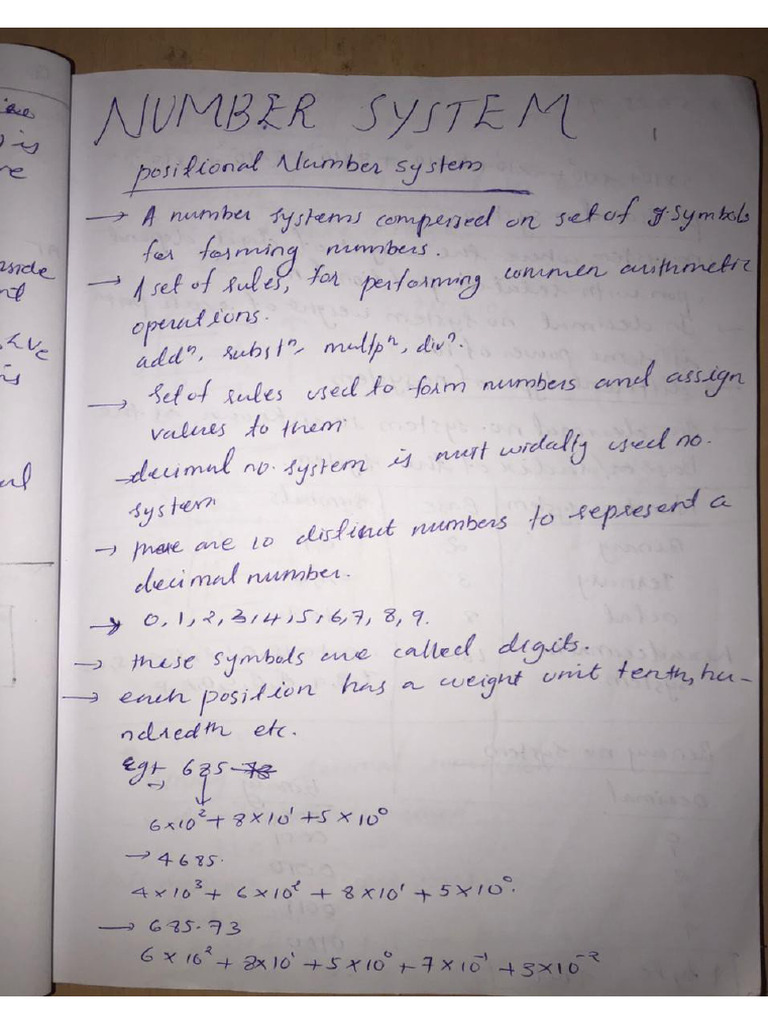 NUMBER SYSTEM
positional Number system
→ A number systems compersed on set of symbols
for forming numbers.
→ A set of rules, for performing common arithmetic
operations.
addⁿ, subst ⁿ, multpⁿ, divⁿ.
→ Set of rules used to form numbers and assign
values to them
→ decimal no. system is most widally used no.
system
→ there are 10 distinct numbers to represent a
decimal number.
→ 0, 1, 2, 3, 4, 5, 6, 7, 8, 9.
→ these symbols are called digits.
→ each position has a weight unit tenth, hu-
ndredth etc.
eg+ 685
6×10² + 8×10¹ + 5×10⁰
→ 4685.
4×10³ + 6×10² + 8×10¹ + 5×10⁰.
→ 685.73
6×10² + 8×10¹ + 5×10⁰ + 7×10⁻¹ + 3×10⁻²